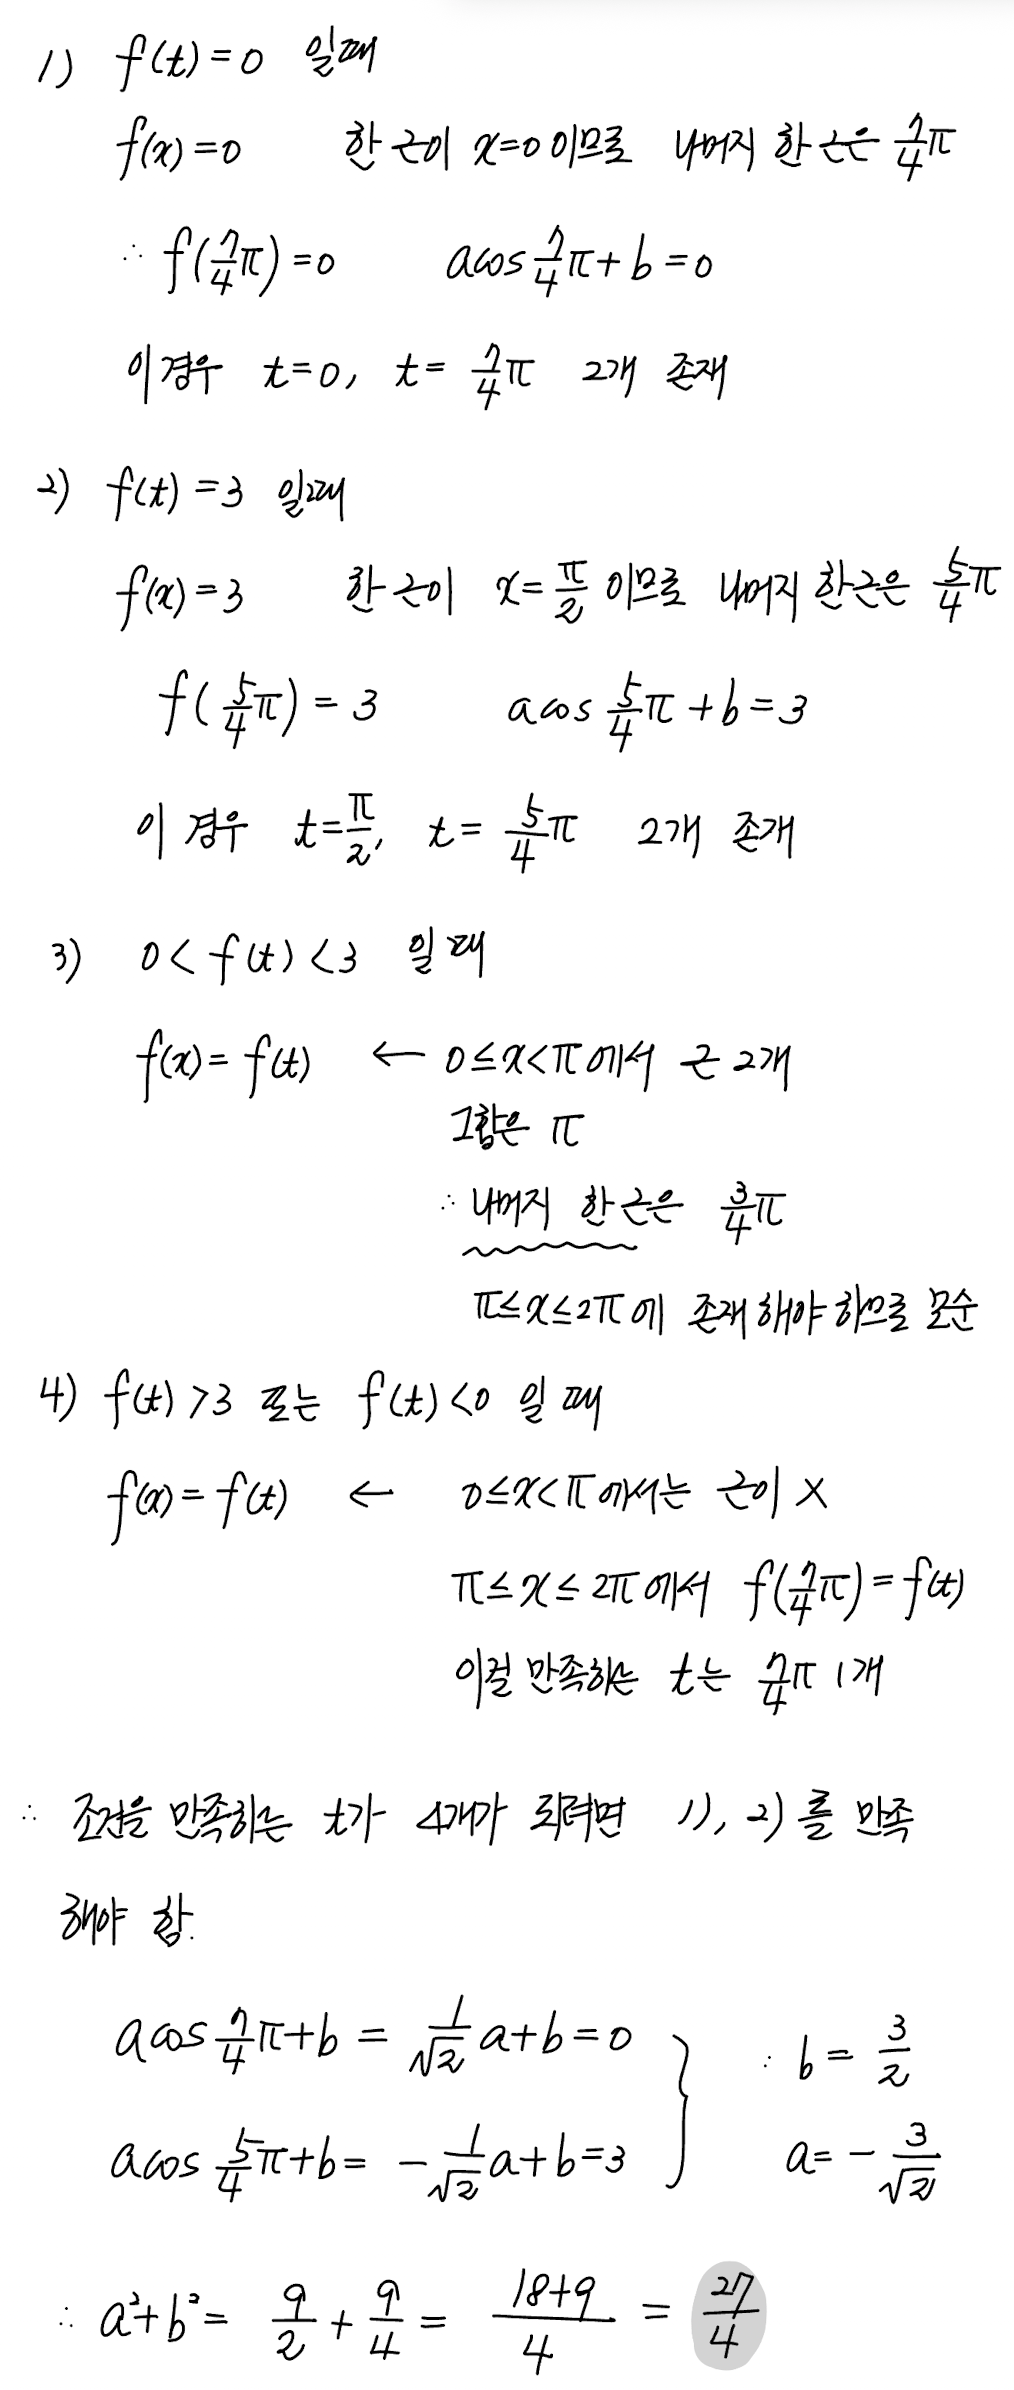 1) f(t)=0 일때
f(x)=0 한 근이 x=0 이므로 나머지 한 근은 7/4π
∴ f(7/4π)=0 acos7/4π+b=0
이 경우 t=0, t=7/4π 2개 존재
2) f(t)=3 일때
f(x)=3 한 근이 x=π/2 이므로 나머지 한근은 5/4π
f(5/4π)=3 acos5/4π+b=3
이 경우 t=π/2, t=5/4π 2개 존재
3) 0<f(t)<3 일 때
f(x)=f(t) ← 0≤x<π에서 근 2개
그합은 π
∴ 나머지 한 근은 3/4π
π≤x≤2π에 존재해야 하므로 모순
4) f(t)>3 또는 f(t)<0 일 때
f(x)=f(t) ← 0≤x<π에서는 근이 X
π≤x≤2π에서 f(7/4π)=f(t)
이걸 만족하는 t는 7/4π 1개
∴ 조건을 만족하는 t가 4개가 되려면 1), 2)를 만족
해야 함.
acos7/4π+b = 1/√2 a+b=0 ∴ b=3/2
acos5/4π+b = -1/√2 a+b=3 a=-3/√2
∴ a²+b²= 9/2+9/4 = (18+9)/4 = 27/4